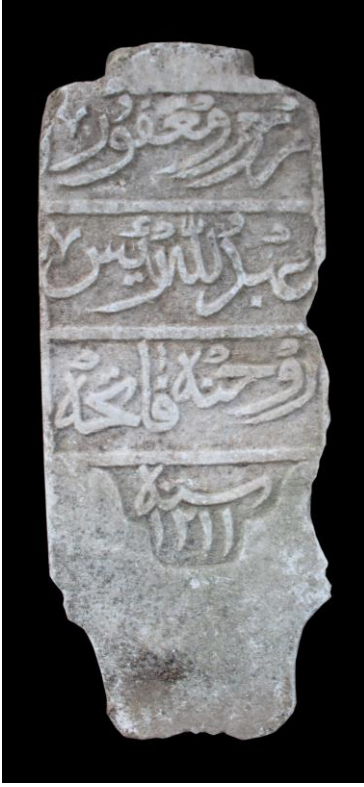 مرحوم ومغفور
عبد الله رئيس
روحنه فاتحه
سنه
١٢١١